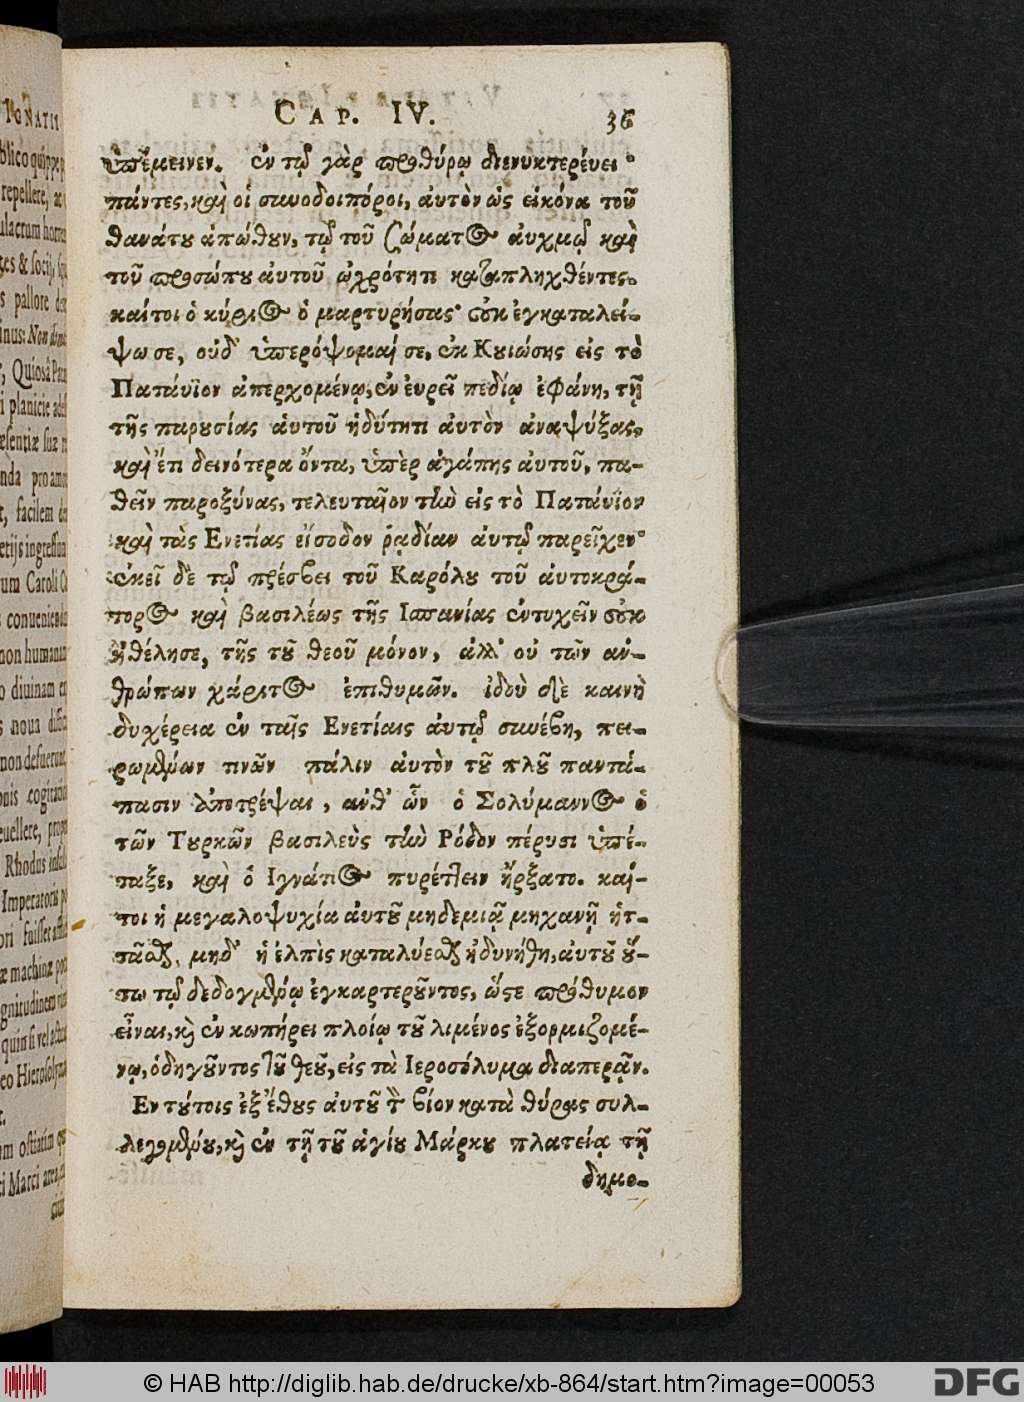 IGNATII
CAP. IV. 36
ὑπέμεινεν. ἐν τῷ γὰρ προθύρῳ διενυκτερέυει·
πάντες, καὶ οἱ συνοδοιπόροι, ἀυτὸν ὡς εἰκόνα τοῦ
θανάτου ἀπώθουν, τῷ τοῦ σώματος ἀυχμῷ καὶ
τοῦ προσώπου ἀυτοῦ ὠχρότητι καταπληχθέντες.
καίτοι ὁ κύριος ὁ μαρτυρήσας· οὐκ ἐγκαταλεί-
ψω σε, οὐδ' ὑπερόψομαί σε, ἐκ Κουιώσης εἰς τὸ
Παταύϊον ἀπερχομένῳ, ἐν ἐυρεῖ πεδίῳ ἐφάνη, τῇ
τῆς παρουσίας ἀυτοῦ ἡδύτητι ἀυτὸν ἀναψύξας,
καὶ ἔτι δεινότερα ὄντα, ὑπὲρ ἀγάπης ἀυτοῦ, πα-
θεῖν παροξύνας, τελευταῖον τὴν εἰς τὸ Παταύϊον
καὶ τὰς Ενετίας εἴσοδον ῥᾳδίαν ἀυτῷ παρεῖχεν·
ἐκεῖ δὲ τῷ πρέσβει τοῦ Καρόλου τοῦ ἀυτοκρά-
τορος καὶ βασιλέως τῆς Ισπανίας ἐντυχεῖν οὐκ
ἠθέλησε, τῆς τοῦ θεοῦ μόνον, ἀλλ' οὐ τῶν ἀν-
θρώπων χάριτος ἐπιθυμῶν. ἰδοὺ δὲ καινὴ
δυχέρεια ἐν ταῖς Ενετίαις ἀυτῷ συνέβη, πει-
ρωμένων τινῶν πάλιν ἀυτὸν τοῦ πλοῦ παντά-
πασιν ἀποτρέψαι, ἀνθ' ὧν ὁ Σολύμαννος ὁ
τῶν Τουρκῶν βασιλεὺς τὴν Ρόδον πέρυσι ὑπέ-
ταξε, καὶ ὁ Ιγνάτιος πυρέττειν ἤρξατο. καί-
τοι ἡ μεγαλοψυχία ἀυτοῦ μηδεμιᾷ μηχανῇ ἡτ-
τᾶσθαι, μηδ' ἡ ἐλπὶς καταλύεσθαι ἠδυνήθη, ἀυτοῦ οὕ-
τω τῷ δεδογμένῳ ἐγκαρτεροῦντος, ὥστε πρόθυμον
εἶναι, καὶ ἐν κωπήρει πλοίῳ τοῦ λιμένος ἐξορμιζομέ-
νῳ, ὁδηγοῦντος τοῦ θεοῦ, εἰς τὰ Ιεροσόλυμα διαπερᾷν.
Εν τούτοις ἐξ ἔθους ἀυτοῦ τὸν βίον κατὰ θύρας συλ-
λεγομένου, καὶ ἐν τῇ τοῦ ἁγίου Μάρκου πλατείᾳ τῇ
δημο-
© HAB http://diglib.hab.de/drucke/xb-864/start.htm?image=00053
DFG